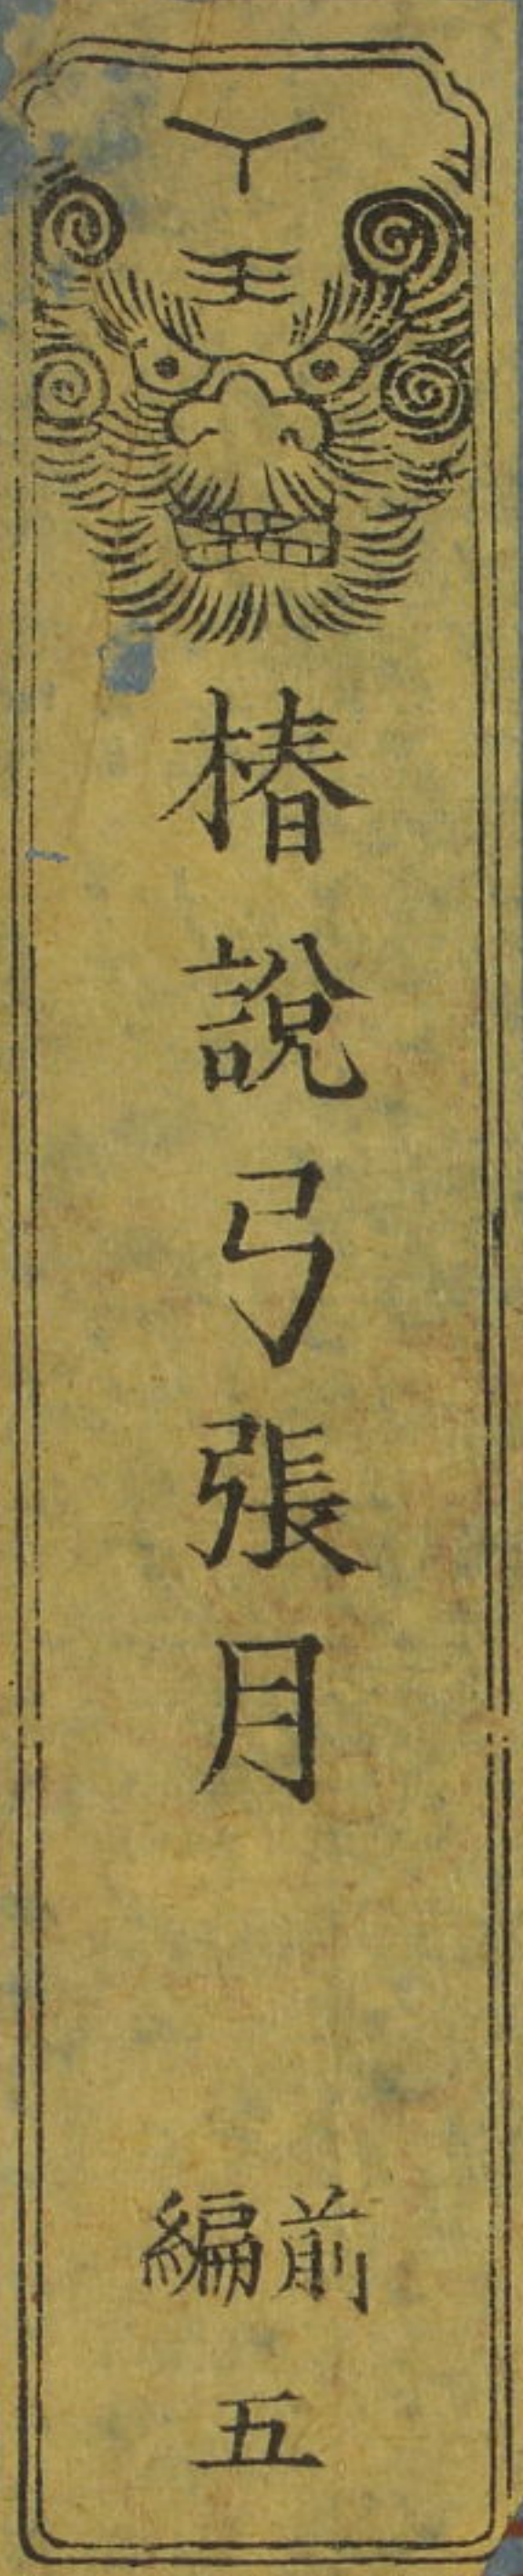 王
椿說弓張月
前編
五